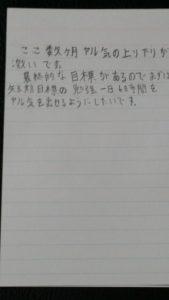 ここ数ヶ月ヤル気の上り下りが
激いです。
最終的な目標があるのでまずは
短期目標の勉強一日6時間を
ヤル気を出せるようにしたいです。